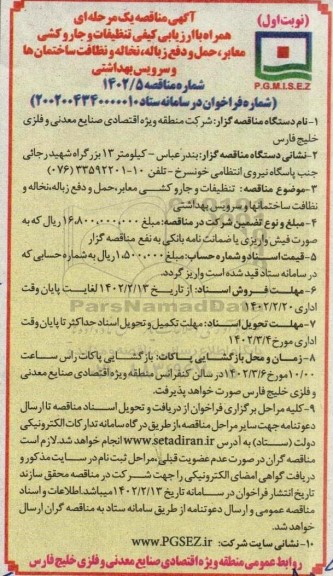 (نوبت اول)
آگهی مناقصه یک مرحله ای
همراه با ارزیابی کیفی تنظیفات و جاروکشی
معابر، حمل و دفع زباله، نخاله و نظافت ساختمان ها
و سرویس بهداشتی
شماره مناقصه ۱۴۰۲/۵
P.G.M.I.S.E.Z
(شماره فراخوان در سامانه ستاد ۲۰۰۲۰۰۴۳۴۰۰۰۰۰۱۰)
۱- نام دستگاه مناقصه گزار: شرکت منطقه ویژه اقتصادی صنایع معدنی و فلزی
خلیج فارس
۲- نشانی دستگاه مناقصه گزار: بندرعباس - کیلومتر ۱۳ بزرگراه شهید رجائی
جنب پاسگاه نیروی انتظامی خونسرخ - تلفن ۱۰-۳۳۵۹۲۲۰۱ (۰۷۶)
۳- موضوع مناقصه: تنظیفات و جاروکشی معابر، حمل و دفع زباله، نخاله و
نظافت ساختمانها و سرویس بهداشتی
۴- مبلغ و نوع تضمین شرکت در مناقصه: مبلغ ۱۶,۸۰۰,۰۰۰,۰۰۰ ریال که به
صورت فیش واریزی یا ضمانت نامه بانکی به نفع مناقصه گزار
۵- قیمت اسناد و شماره حساب: مبلغ ۱,۵۰۰,۰۰۰ ریال به شماره حسابی که
در سامانه ستاد قید شده است واریز گردد.
۶- مهلت فروش اسناد: از تاریخ ۱۴۰۲/۲/۱۳ لغایت پایان وقت
اداری ۱۴۰۲/۲/۲۰
۷- مهلت تحویل اسناد: مهلت تکمیل و تحویل اسناد حداکثر تا پایان وقت
اداری مورخ ۱۴۰۲/۳/۴
۸- زمان و محل بازگشایی پاکات: بازگشایی پاکات راس ساعت
۱۰/۰۰ مورخ ۱۴۰۲/۳/۶ در سالن کنفرانس منطقه ویژه اقتصادی صنایع معدنی
و فلزی خلیج فارس صورت خواهد پذیرفت.
۹- کلیه مراحل برگزاری فراخوان از دریافت و تحویل اسناد مناقصه تا ارسال
دعوتنامه جهت سایر مراحل مناقصه، از طریق درگاه سامانه تدارکات الکترونیکی
دولت (ستاد) به آدرس www.setadiran.ir انجام خواهد شد. لازم است
مناقصه گران در صورت عدم عضویت قبلی، مراحل ثبت نام در سایت مذکور و
دریافت گواهی امضای الکترونیکی را جهت شرکت در مناقصه محقق سازند
تاریخ انتشار فراخوان در سامانه تاریخ ۱۴۰۲/۲/۱۳ میباشد. اطلاعات و اسناد
مناقصه عمومی و ارسال دعوتنامه از طریق سامانه ستاد به مناقصه گران ارسال
خواهد شد.
۱۰- نشانی سایت شرکت: www.PGSEZ.ir
روابط عمومی منطقه ویژه اقتصادی صنایع معدنی و فلزی خلیج فارس